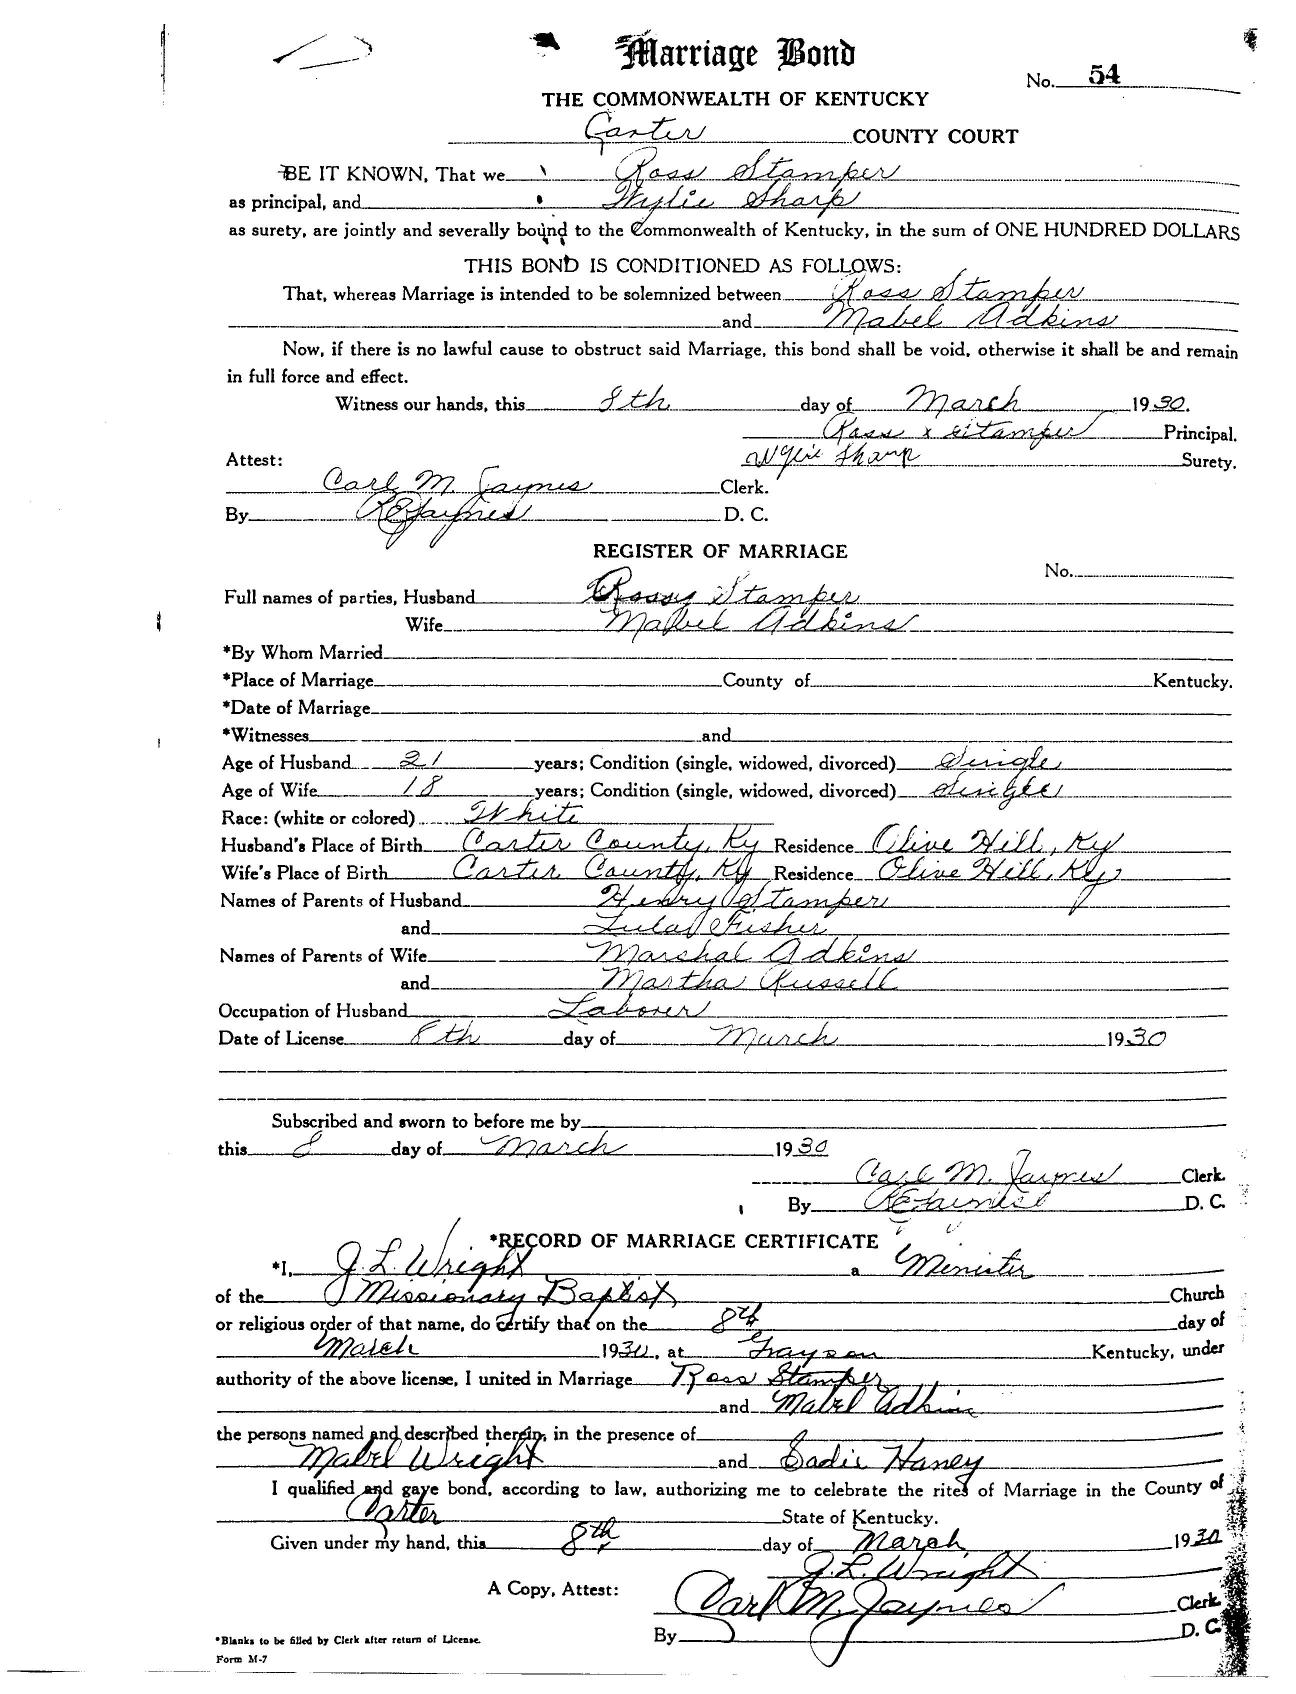 Marriage Bond
No. 54
THE COMMONWEALTH OF KENTUCKY
Carter COUNTY COURT
BE IT KNOWN, That we Ross Stamper
as principal, and Wylie Sharp
as surety, are jointly and severally bound to the Commonwealth of Kentucky, in the sum of ONE HUNDRED DOLLARS
THIS BOND IS CONDITIONED AS FOLLOWS:
That, whereas Marriage is intended to be solemnized between Ross Stamper
and Mabel Adkins
Now, if there is no lawful cause to obstruct said Marriage, this bond shall be void, otherwise it shall be and remain
in full force and effect.
Witness our hands, this 8th day of March 1930.
Ross x Stamper Principal.
Attest: Wylie Sharp Surety.
Carl M. Jaynes Clerk.
By RE Jaynes D. C.
REGISTER OF MARRIAGE
No.
Full names of parties, Husband Stamper
Wife Mabel Adkins
*By Whom Married
*Place of Marriage County of Kentucky.
*Date of Marriage
*Witnesses and
Age of Husband 21 years; Condition (single, widowed, divorced) Single
Age of Wife 18 years; Condition (single, widowed, divorced) Single
Race: (white or colored) White
Husband's Place of Birth Carter County, Ky Residence Olive Hill, Ky
Wife's Place of Birth Carter County, Ky Residence Olive Hill, Ky
Names of Parents of Husband Henry Stamper
and Lula Fisher
Names of Parents of Wife Marshal Adkins
and Martha Russell
Occupation of Husband Laborer
Date of License 8th day of March 1930
Subscribed and sworn to before me by
this 8 day of March 1930
Carl M. Jaynes Clerk.
By RE Jaynes D. C.
*RECORD OF MARRIAGE CERTIFICATE
*I, J. L. Wright a Minister
of the Missionary Baptist Church
or religious order of that name, do certify that on the 8th day of
March 1930, at Grayson Kentucky, under
authority of the above license, I united in Marriage Ross Stamper
and Mabel Adkins
the persons named and described therein, in the presence of
Mabel Wright and Sadie Haney
I qualified and gave bond, according to law, authorizing me to celebrate the rites of Marriage in the County of
Carter State of Kentucky.
Given under my hand, this 8th day of March 1930
J. L. Wright
A Copy, Attest: Carl M. Jaynes Clerk.
By D. C.
*Blanks to be filled by Clerk after return of License.
Form M-7